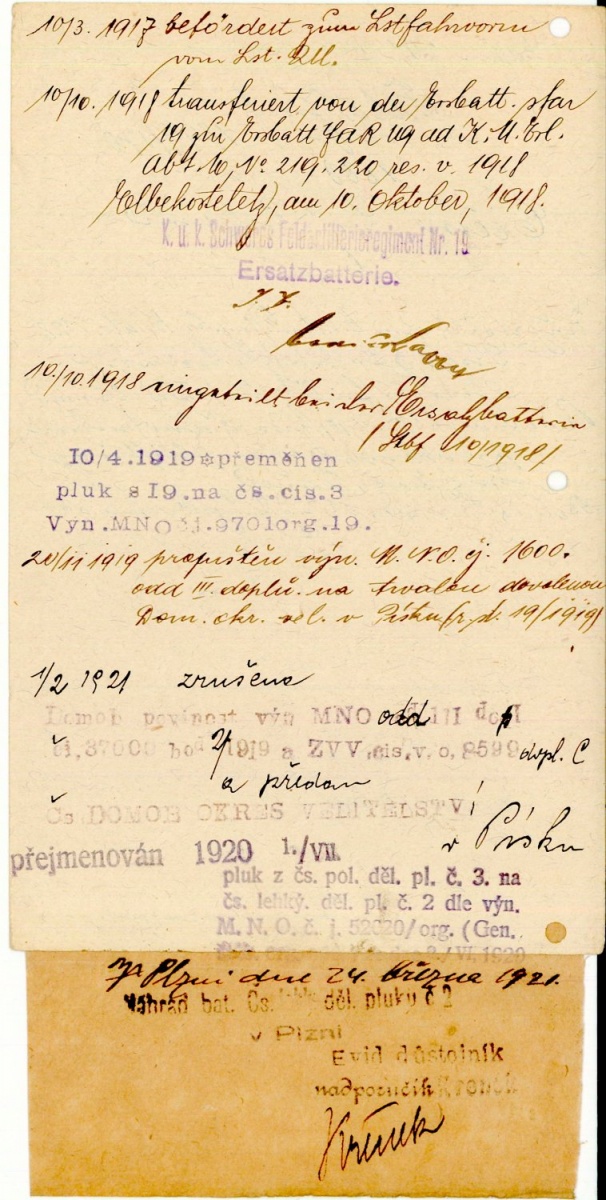 10/3. 1917 befördert zum Lstfahrvorm
vom Lst.
10/10. 1918 transferiert von der Ersbatt. sfar
19 zur Ersbatt ad K. M. Erl.
Abt 10, No 219.220 res. v. 1918
Elbekosteletz, am 10. Oktober, 1918.
K. u. k. Schweres Feldartillerieregiment Nr. 19
Ersatzbatterie.
10/10.1918 eingeteilt bei der Ersatzbatterie
/ 10/1918/
10/4.1919 přeměněn
pluk s 19.na čs.cis.3
Vyn.MNOčj.9701org.19.
20/11 1919 propuštěn výn. M. N. O. čj. 1600.
odd III. doplň. na trvalou dovolenou
Dom. okr. vel. v Písku (r. d. 19/1919)
1/2 1921 zrušena
Domob povinnost výn MNO odd
či.37000 hod 2/ 1919 a ZVV.cis.v.o.8599 dopl. C
a předán
Čs DOMOB OKRES VELITELSTVÍ
v Písku
přejmenován 1920 1./VII.
pluk z čs. pol. děl. pl. č. 3. na
čs. lehký. děl. pl. č. 2 dle výn.
M. N. O. č. j. 52020/org. (Gen.
/VI. 1920
Plzni dne 24. března 1921.
Náhrad bat. Čs. děl. pluku č 2
v Plzni
Evid důstojník
nadporučík